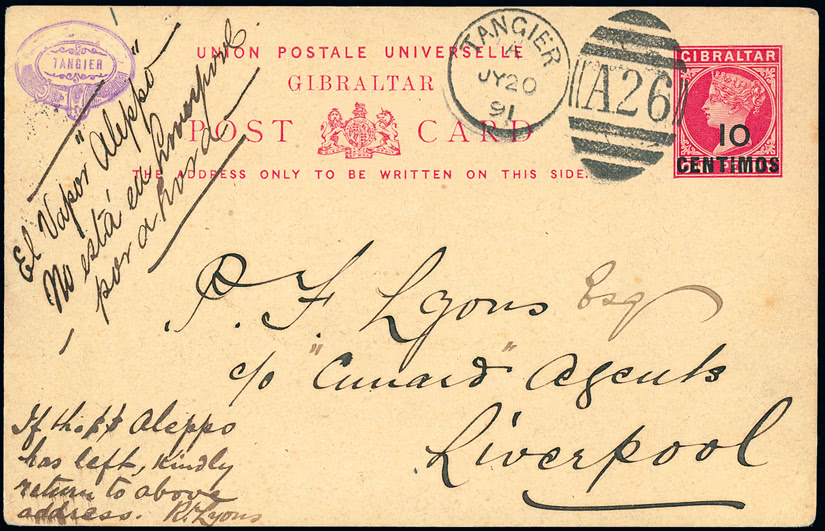 TANGIER
El Vapor "Aleppo"
No está en Liverpool
por ahora
UNION POSTALE UNIVERSELLE
GIBRALTAR
POST CARD
THE ADDRESS ONLY TO BE WRITTEN ON THIS SIDE.
TANGIER
A
JY 20
91
A26
GIBRALTAR
10
CENTIMOS
R. F. Lyons Esq
c/o "Cunard" Agents
Liverpool
If the SS Aleppo
has left, kindly
return to above
address. R. Lyons